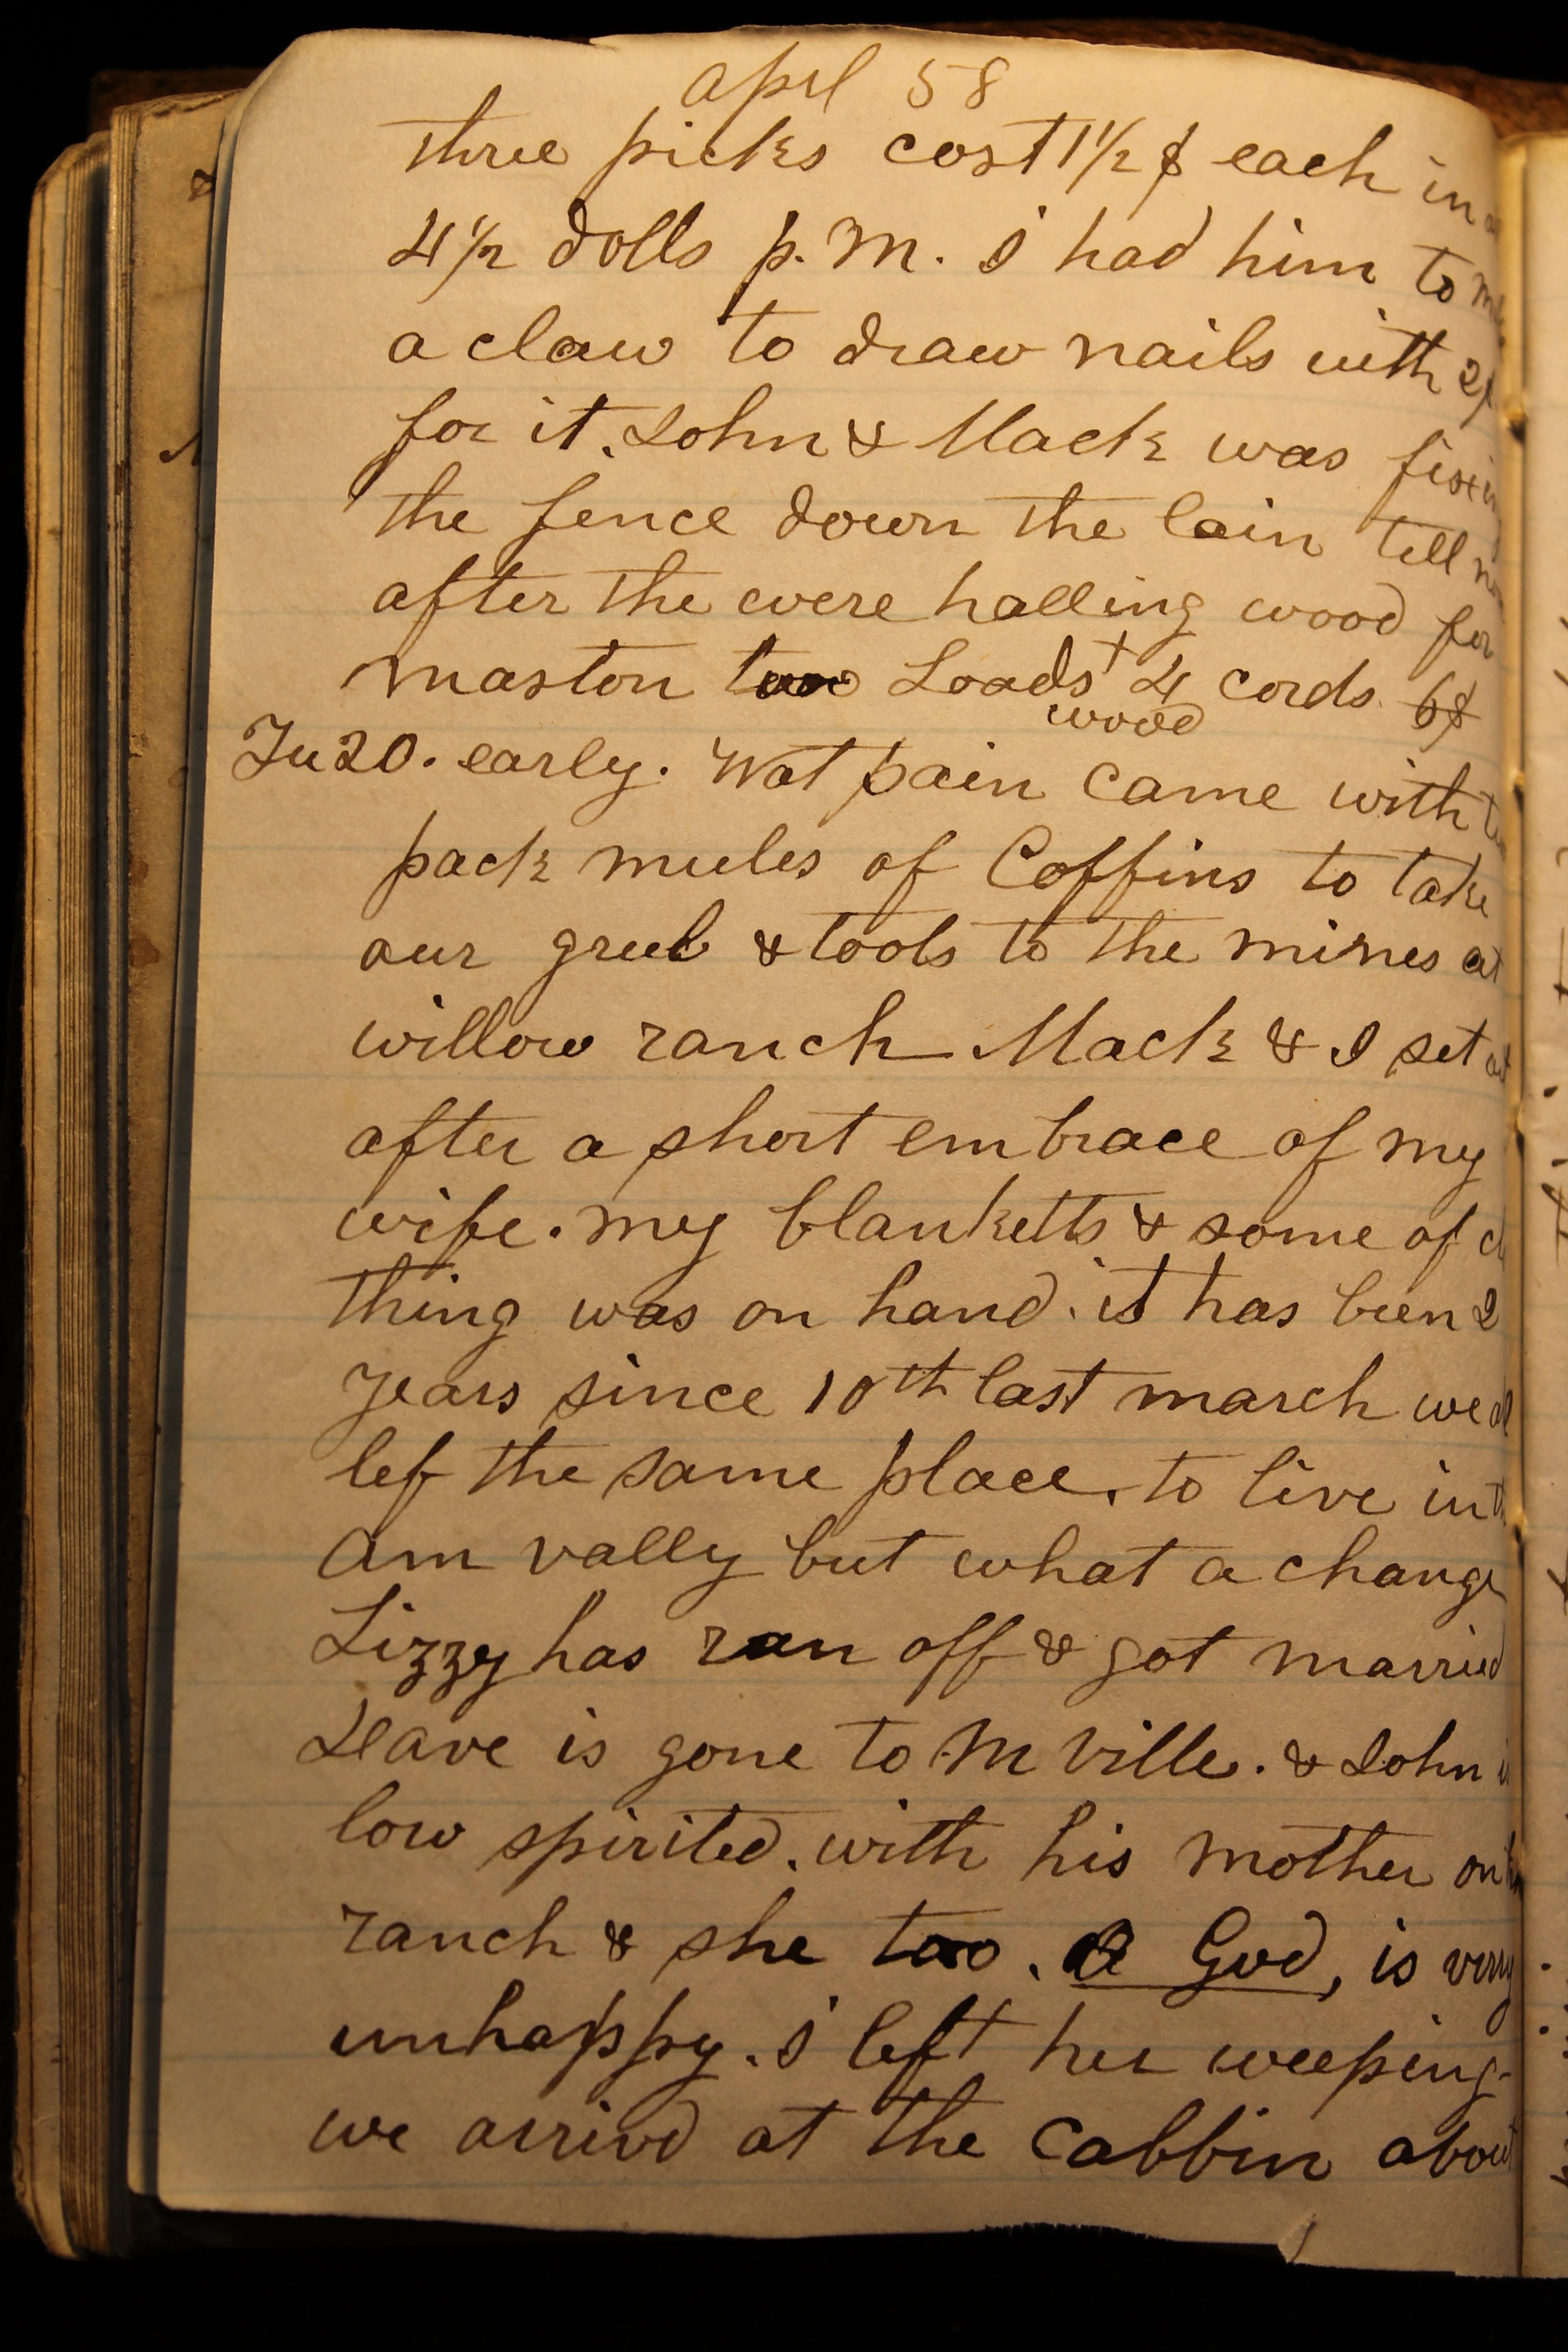 april 58
three picks cost 1 1/2 $ each in
4 1/2 dolls p. M. I had him to
a claw to draw nails with 2$
for it. John & Mack was fixin
the fence down the lain till
after the were halling wood for
maston two Loads + 4 cords 6$
wood
Tu 20. early. Wat pain came with
pack mules of Coffins to take
our greeb & tools to the mines at
willow ranch Mack & I set
after a short embrace of my
wife. my blanketts & some of
thing was on hand. it has been 2
years since 10th last march we
lef the same place. to live in
Am vally but what a change
Lizzy has ran off & got married
Dave is gone to M ville. & John
low spirited. with his mother on
ranch & she too. O God, is very
unhappy. I left her weeping-
we arrivd at the Cabbin about